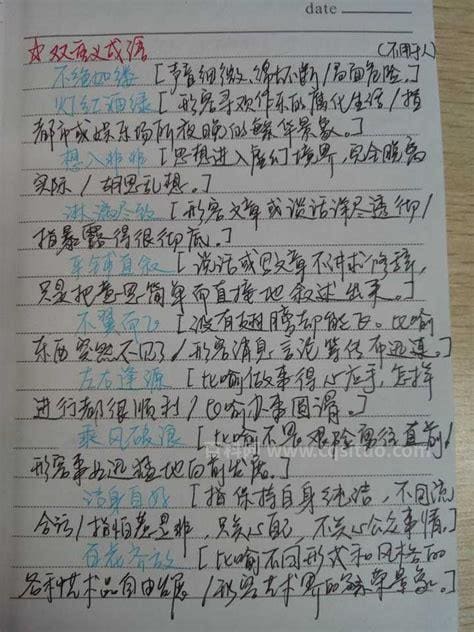 date
☆双语义成语 (不用于人)
不绝如缕 [声音细微、绵绵不断/局面危险。]
灯红酒绿 [形容寻欢作乐的腐化生活/指
都市或娱乐场所夜晚的繁华景象。]
想入非非 [思想进入虚幻境界,完全脱离
实际/胡思乱想。]
淋漓尽致 [形容文章或谈话详尽透彻/
指暴露得很彻底。]
平铺直叙 [说话或写文章不讲求修辞,
只是把意思简单而直接地叙述出来。]
不翼而飞 [没有翅膀却能飞。比喻
东西突然不见了/形容消息、言论等传布迅速。]
左右逢源 [比喻做事得心应手,怎样
进行都很顺利/比喻办事圆滑。]
乘风破浪 [比喻不畏艰险勇往直前/
形容事业迅猛地向前发展。]
洁身自好 [指保持自身纯洁,不同流
合污/指怕惹是非,只关心自己,不关心公众事情。]
百花齐放 [比喻不同形式和风格的
各种艺术品自由发展/形容艺术界的繁荣景象。]
百科网 www.cqsituo.com